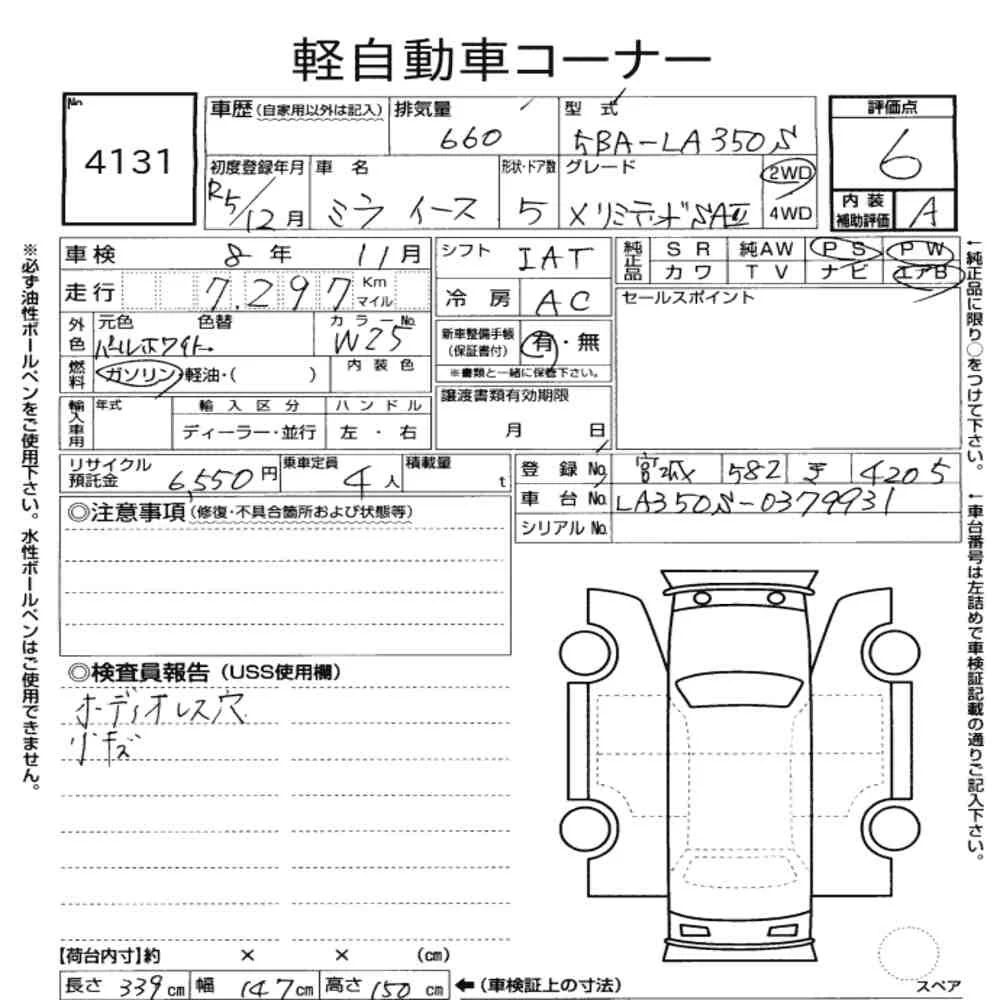 軽自動車コーナー
No.
4131
車歴(自家用以外は記入)
排気量
660
型式
5BA-LA350S
評価点
6
初度登録年月
R5/12月
車名
ミラ イース
形状・ドア数
5
グレード
X リミテッドSAⅢ
2WD
4WD
内装
補助評価
A
車検 8年 11月
シフト IAT
純正品
SR 純AW PS PW
カワ TV ナビ エアB
走行 7,297 Km
マイル
冷房 AC
セールスポイント
外色
元色 色替
パールホワイト
カラーNo.
W25
新車整備手帳
(保証書付)
有・無
※書類と一緒に保管下さい。
燃料
ガソリン・軽油・( )
内装色
輸入車用
年式
輸入区分
ディーラー・並行
ハンドル
左・右
譲渡書類有効期限
月 日
リサイクル
預託金
6,550円
乗車定員
4人
積載量
t
登録No. 宮城 582 4205
車台No. LA350S-0379931
シリアルNo.
◎注意事項(修復・不具合箇所および状態等)
◎検査員報告(USS使用欄)
オーディオレス穴
小キズ
【荷台内寸】約 × × (cm)
長さ 339cm 幅 147cm 高さ 150cm
←(車検証上の寸法)
スペア
※必ず油性ボールペンをご使用下さい。水性ボールペンはご使用できません。
←純正品に限り○をつけて下さい。
←車台番号は左詰めで車検証記載の通りご記入下さい。